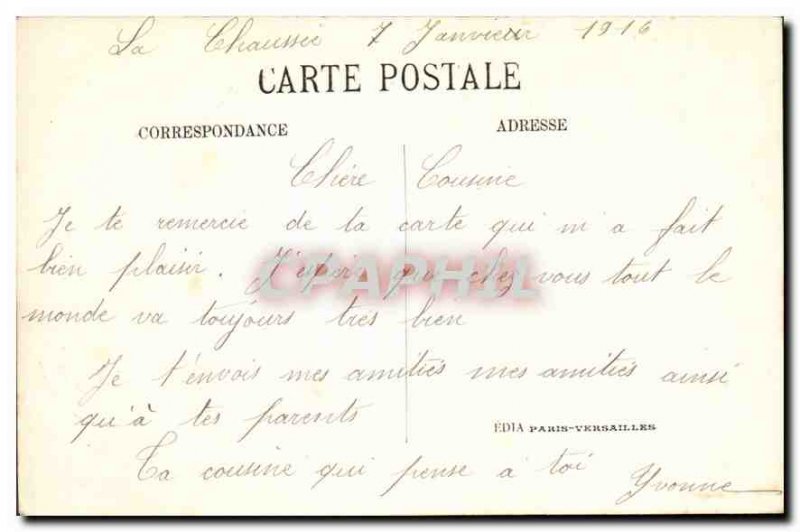 La Chaussée 7 Janvieur 1916
CARTE POSTALE
CORRESPONDANCE
ADRESSE
Chère Cousine
Je te remercie de la carte qui m'a fait
bien plaisir. J'espère que chez vous tout le
monde va toujours tres bien
Je t'envois mes amitiés mes amitiés ainsi
qu'à tes parents
EDIA PARIS-VERSAILLES
Ta cousine qui pense a toi
Yvonne
CPAPHIL